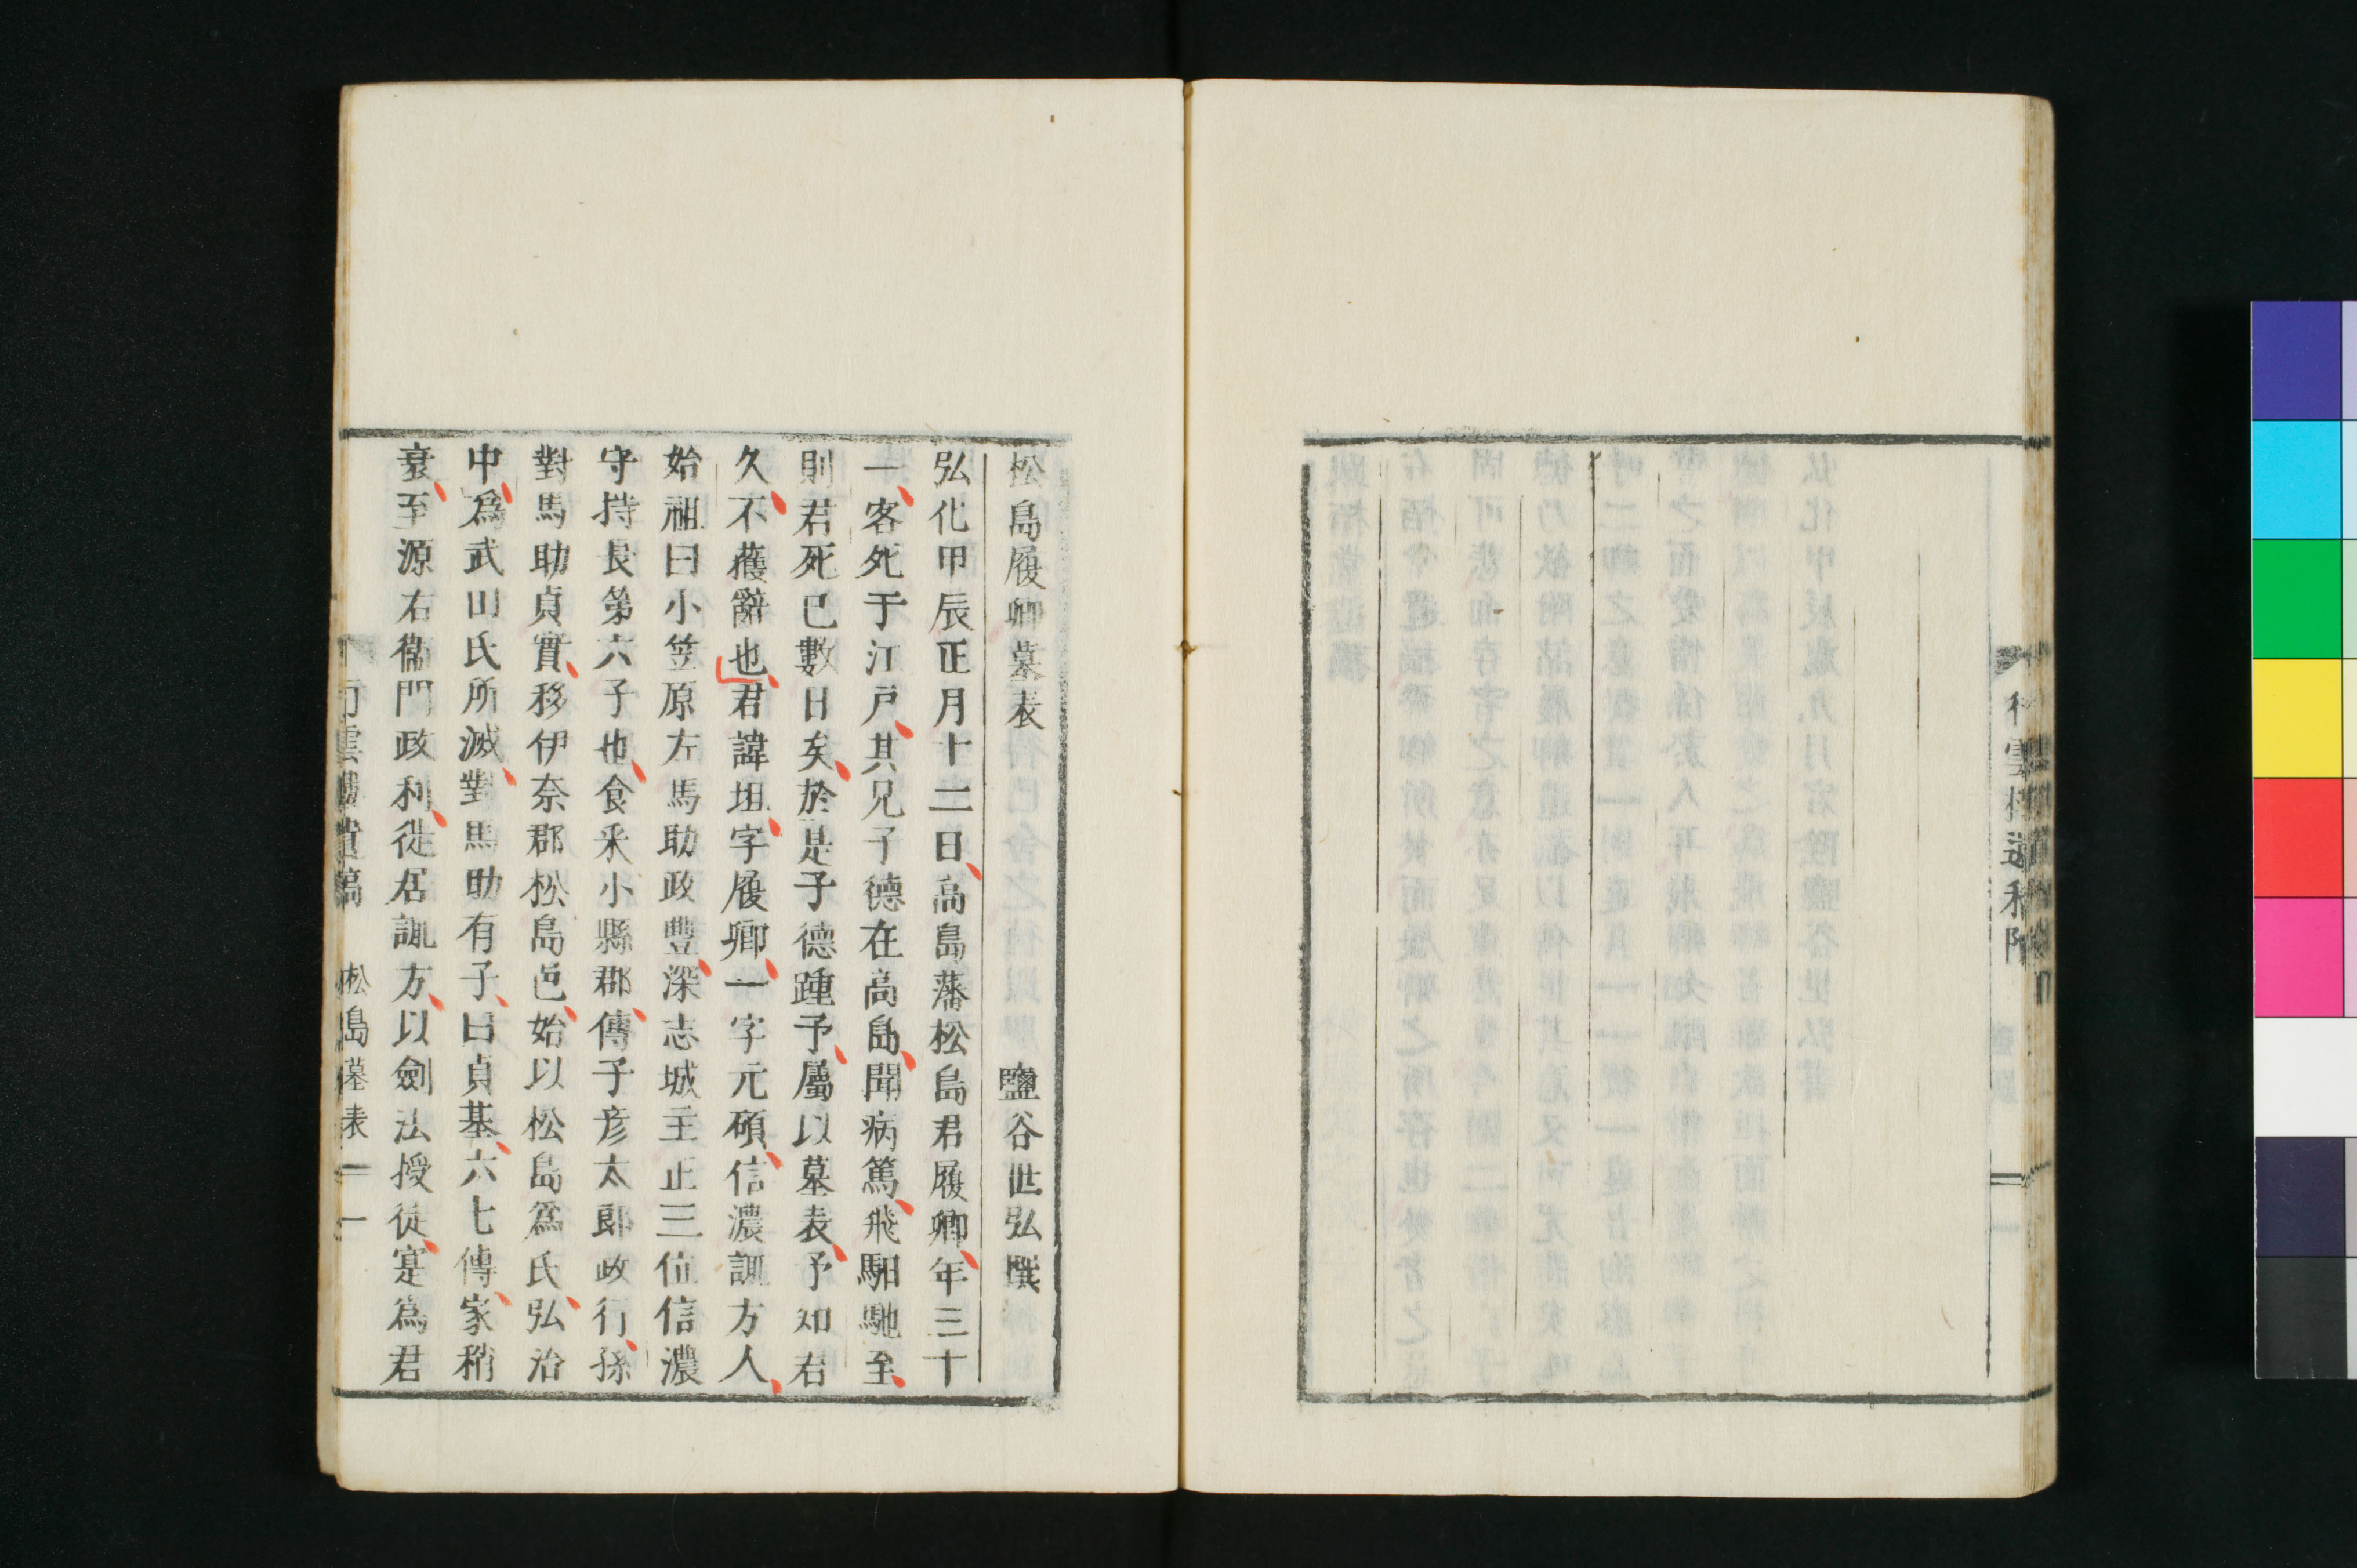 松島履卿墓表
鹽谷世弘撰
弘化甲辰正月十二日高島藩松島君履卿年三十
一客死于江戸其兄子德在高島聞病篤飛馹馳至
則君死已數日矣於是子德踵予屬以墓表予知君
久不蕕辭也君諱坦字履卿一字元碩信濃諏方人
始祖曰小笠原左馬助政豐深志城主正三位信濃
守持長第六子也食釆小縣郡傳子彦太郎政行孫
對馬助貞實移伊奈郡松島邑始以松島爲氏弘治
中爲武田氏所滅對馬助有子曰貞基六七傳家稍
衰至源右衞門政利徙居諏方以劍法授徒寔爲君
松島墓表 一